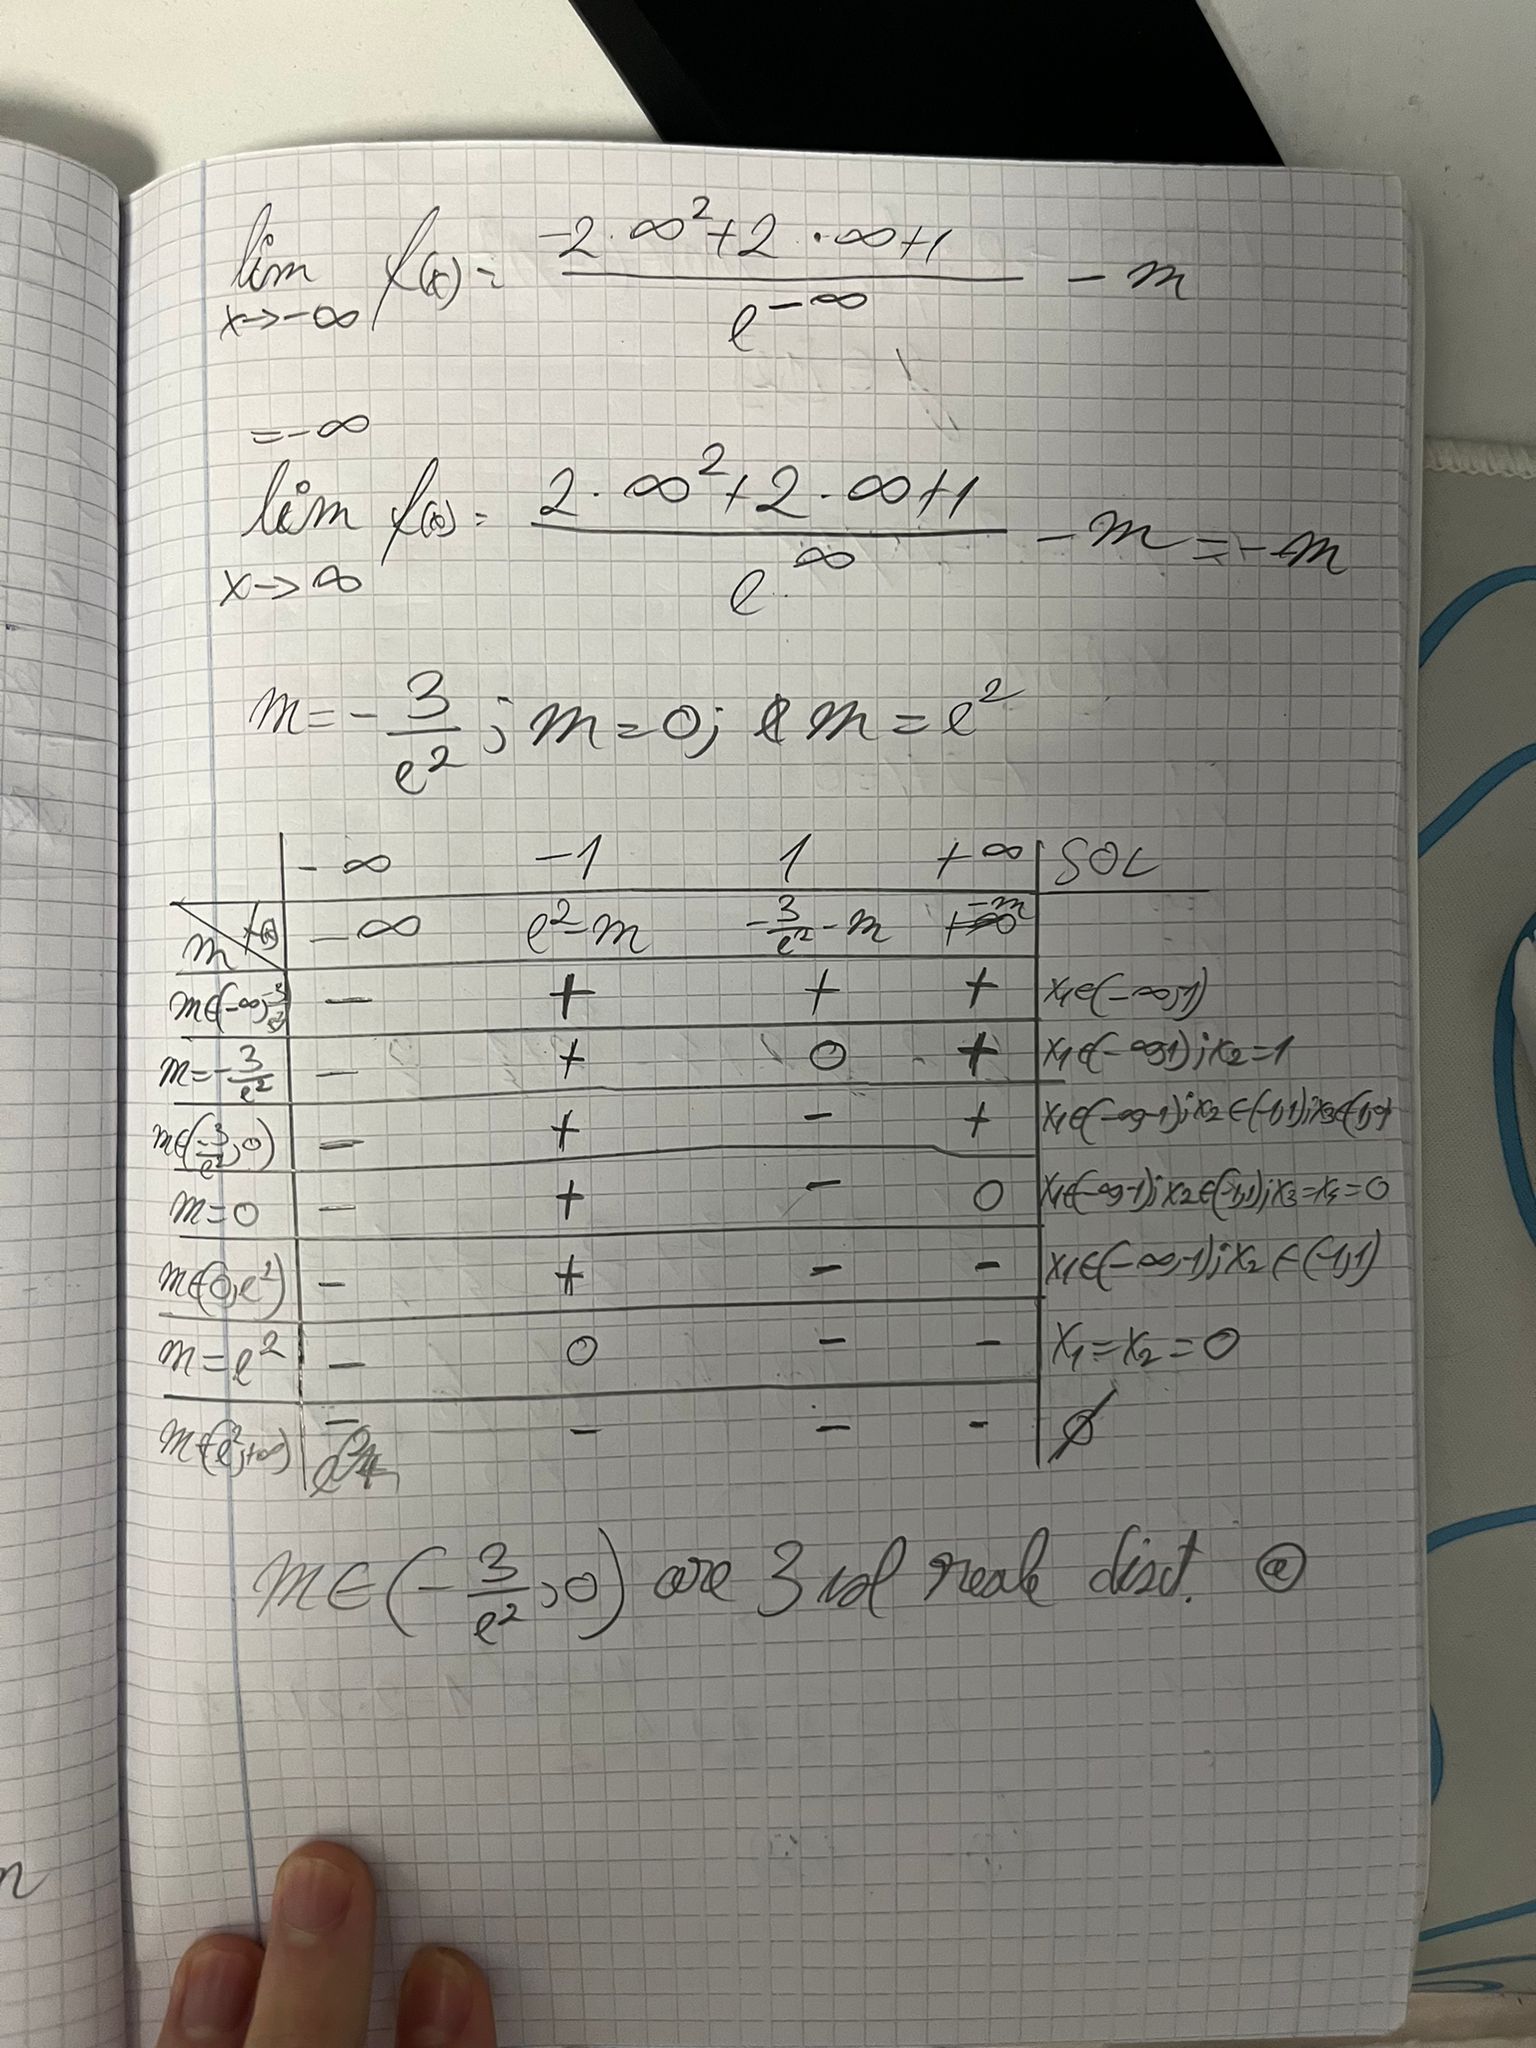 lim x→-∞ f(x) = (-2·∞²+2·∞+1)/(e^-∞) - m
= -∞
lim x→∞ f(x) = (2·∞²+2·∞+1)/(e^∞) - m = -m
m = -3/e² ; m = 0; m = e²
-∞ -1 1 +∞ SOL
m f(x) -∞ e²-m -3/e²-m -m
m∈(-∞;-3/e²) - + + + x₁∈(-∞;1)
m=-3/e² - + 0 + x₁∈(-∞;1) ; x₂=1
m∈(-3/e²;0) - + - + x₁∈(-∞;-1) ; x₂∈(-1;1) ; x₃∈(1;∞)
m=0 - + - 0 x₁∈(-∞;-1) ; x₂∈(-1;1) ; x₃=x₄=0
m∈(0;e²) - + - - x₁∈(-∞;-1) ; x₂∈(-1;1)
m=e² - 0 - - x₁=x₂=0
m∈(e²;+∞) - - - - ∅
m∈(-3/e²;0) are 3 sol reale dist. ⓐ
n